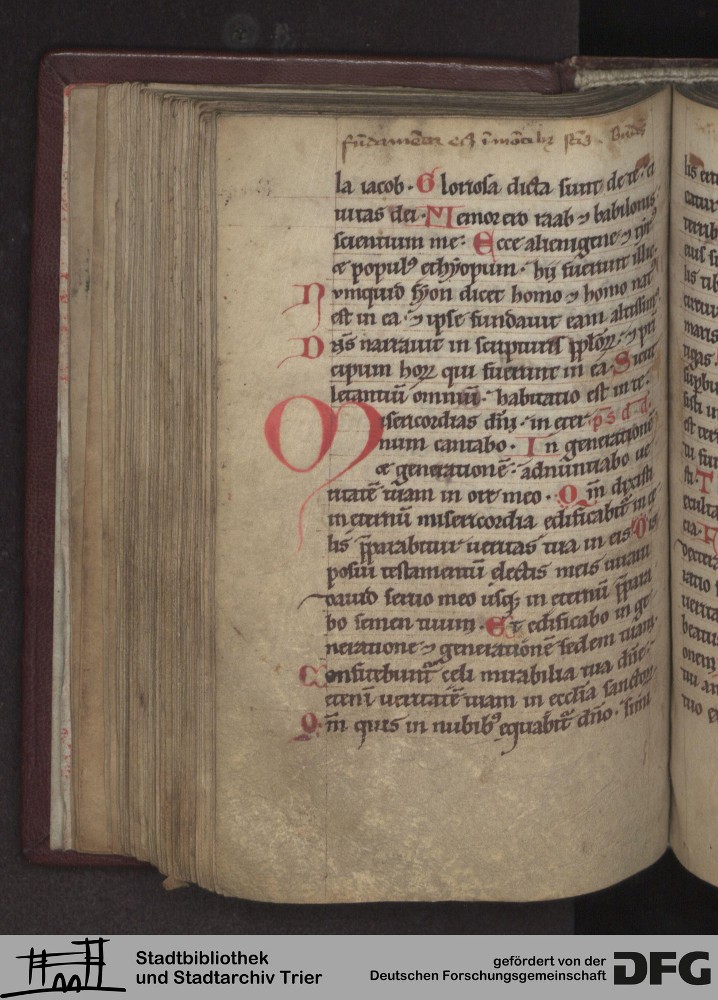 fu̅dame̅ta eiꝰ i̅ mo̅tibꝫ sc̅is
la iacob. Gloriosa dicta sunt de te. ci
uitas dei. Memor ero raab ⁊ babilonis
scientium me: Ecce alienigene ⁊ tyrꝰ
et populꝰ ethyopum. hij fuerunt illic.
Numquid syon dicet homo ⁊ homo natꝰ
est in ea: ⁊ ipse fundauit eam altissimꝰ
Dn̅s narrauit in scripturis pp̅lorꝝ: ⁊ pri
cipum horꝝ qui fuerunt in ea. Sicut
letantiu̅ omniu̅: habitatio est in te.
Misericordias dn̅i: in eter p̅s d̅d̅
num cantabo. In generatione̅
et generatione̅: adnuntiabo ue
ritate̅ tuam in ore meo. Qm̅ dixisti
in eternu̅ misericordia edificabit̅ in ce
lis p̅parabitur ueritas tua in eis Dis
posui testamentu̅ electis meis iuraui
dauid seruo meo usqꝫ in eternu̅ p̅para
bo semen tuum. Et edificabo in ge
neratione ⁊ generatione̅ sedem tuam.
Confitebunt̅ celi mirabilia tua dn̅e:
eteni̅ ueritate̅ tuam in ecc̅lia sanctorꝝ
Qm̅ quis in nubibꝰ equabit̅ dn̅o. simi
Stadtbibliothek
und Stadtarchiv Trier
gefördert von der
Deutschen Forschungsgemeinschaft
DFG